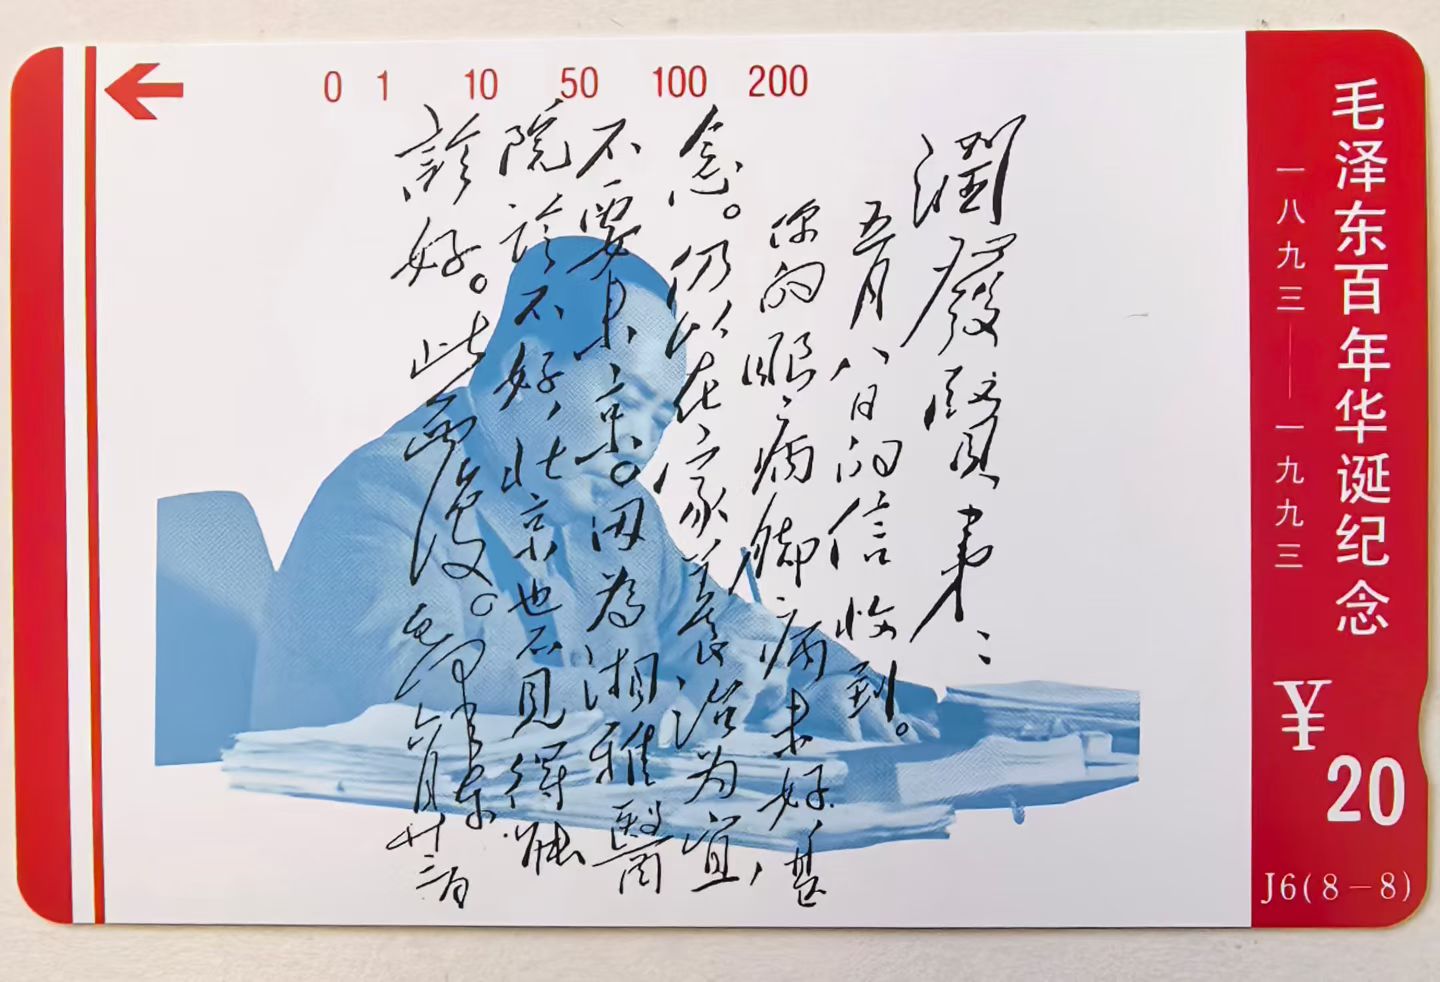 0 1 10 50 100 200
潤發賢弟：
五月八日的信收到。
你的眼病脚病未好，甚
念。仍以在家養治为宜，
不要来京。因為湘雅醫
院診不好，北京也不見得能
診好。此覆。毛澤東 六月廿三日
毛泽东百年华诞纪念
一八九三——一九九三
¥20
J6(8－8)